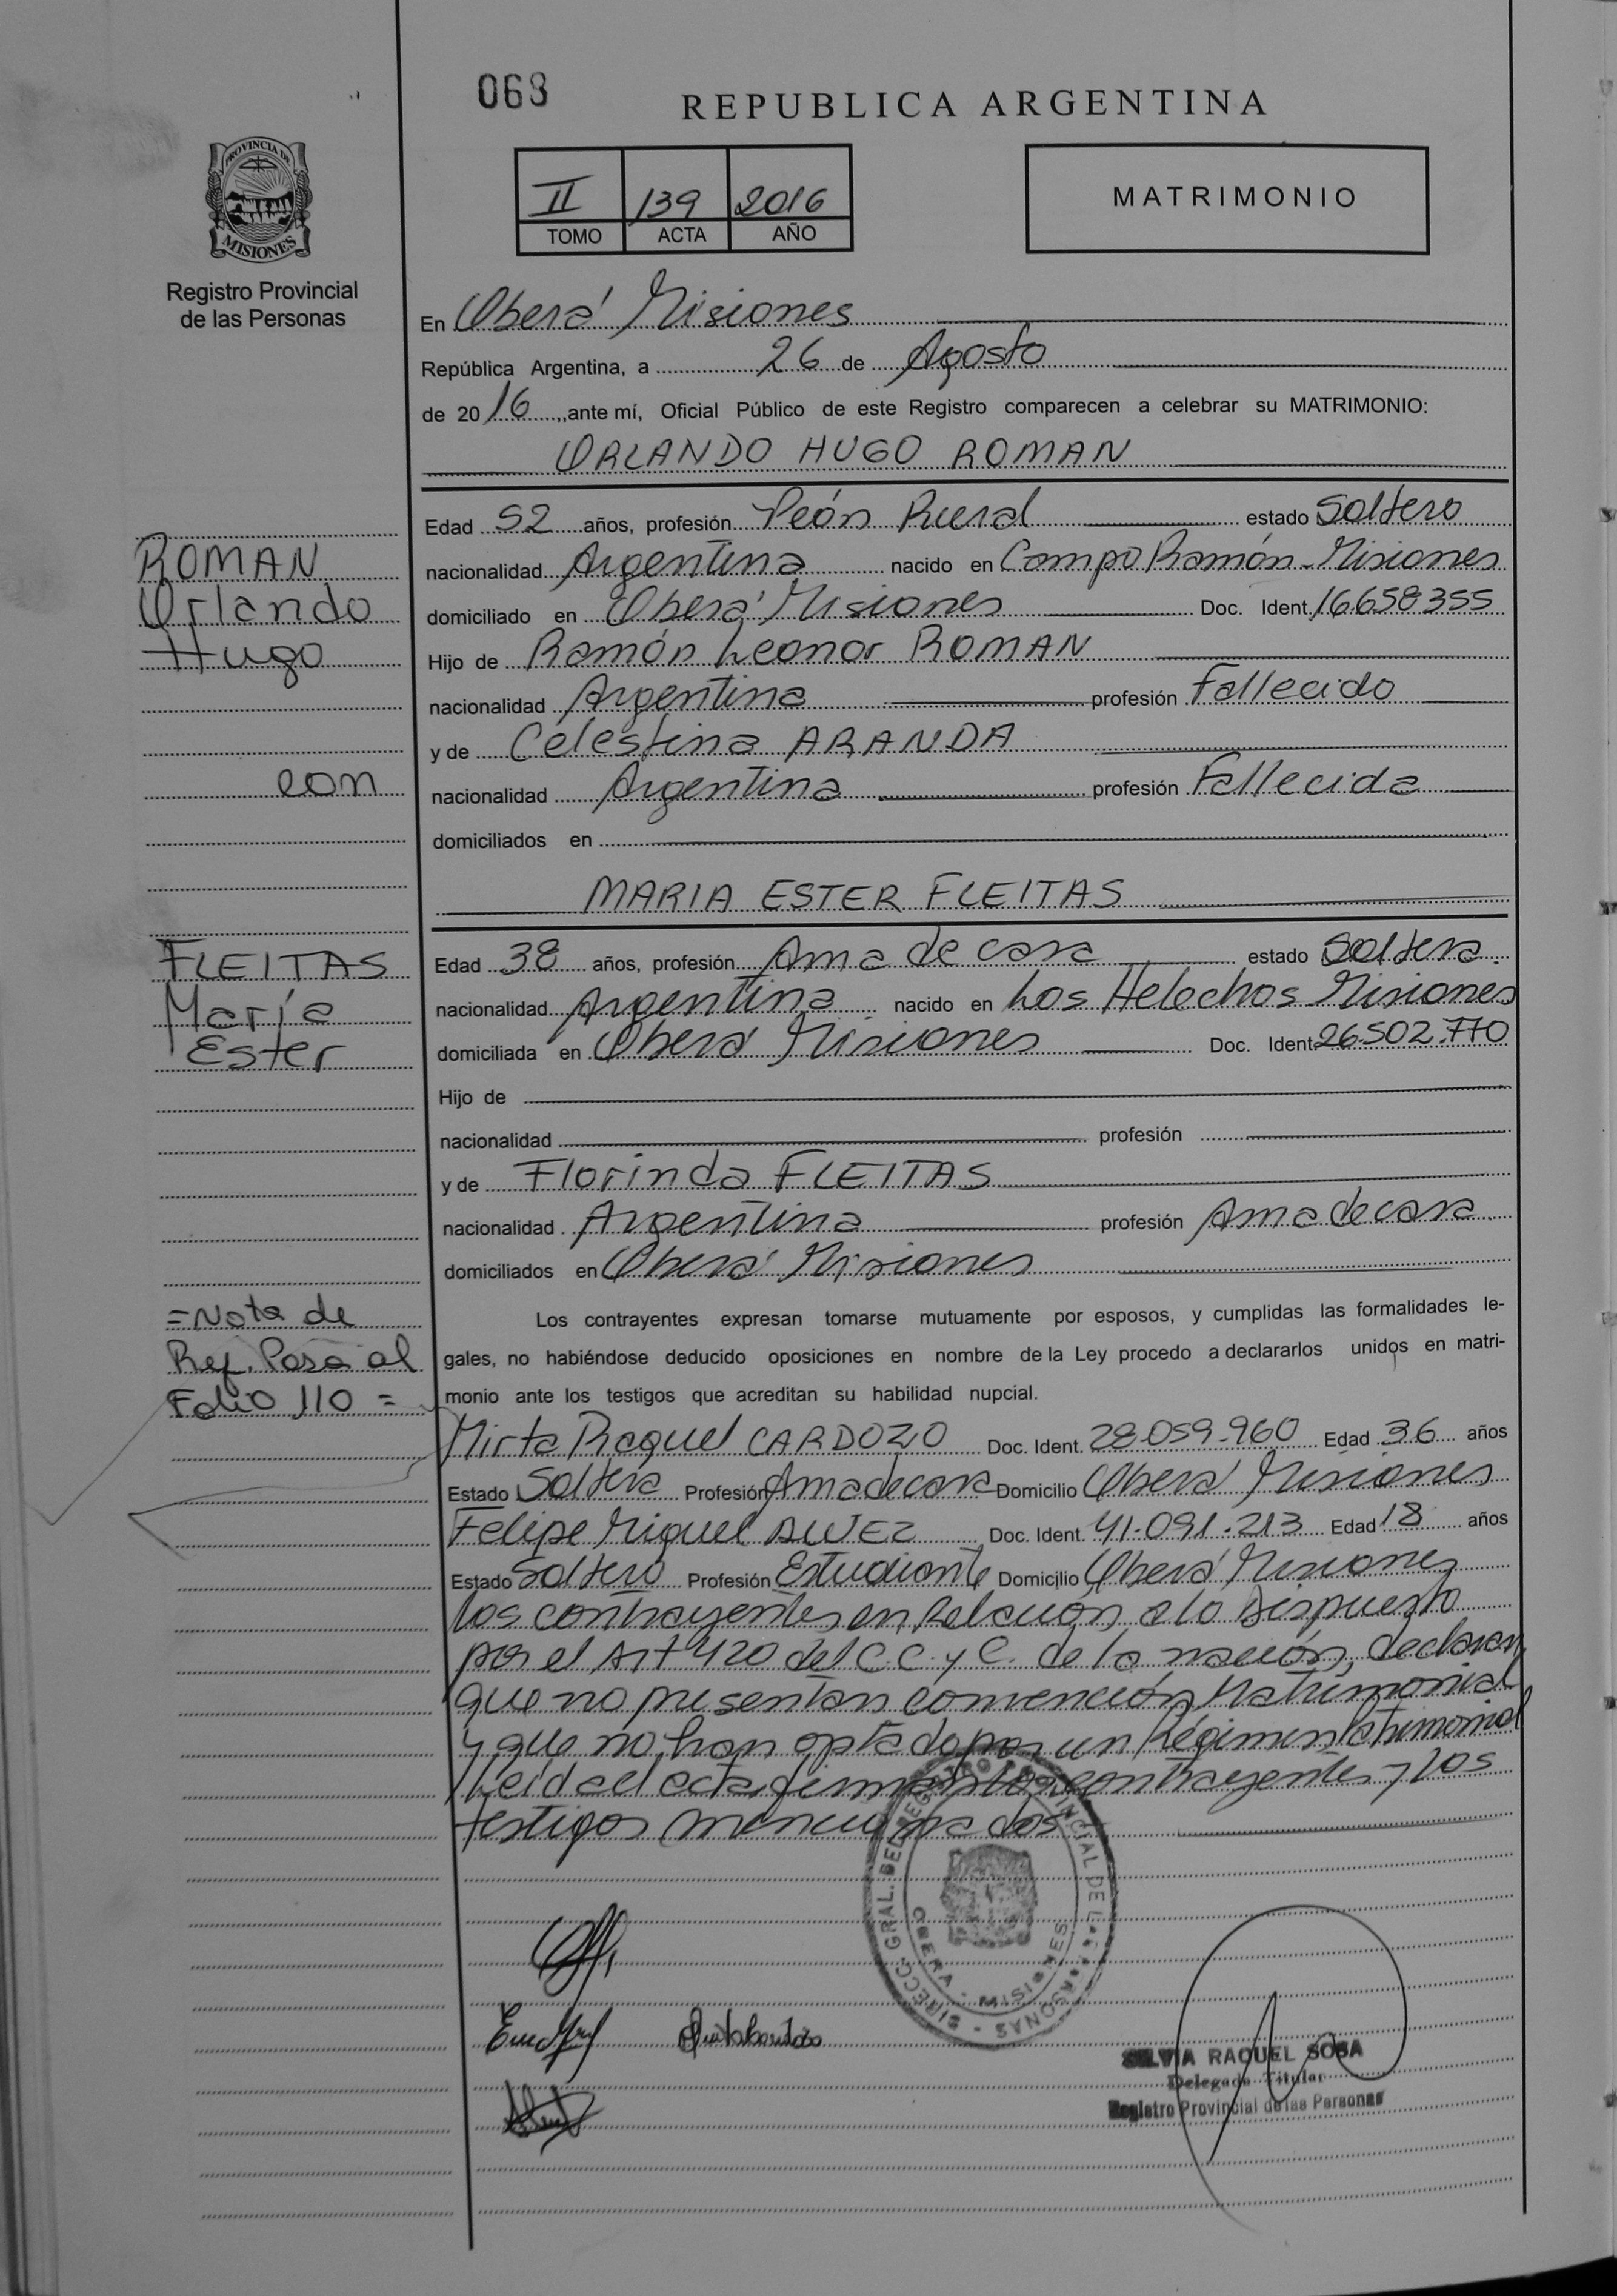 068
REPUBLICA ARGENTINA
PROVINCIA DE
MISIONES
Registro Provincial
de las Personas
II 139 2016
TOMO ACTA AÑO
MATRIMONIO
En Oberá Misiones
República Argentina, a 26 de Agosto
de 2016, ante mí, Oficial Público de este Registro comparecen a celebrar su MATRIMONIO:
ORLANDO HUGO ROMAN
Edad 52 años, profesión Peón Rural estado Soltero
nacionalidad Argentina nacido en Campo Ramón - Misiones
domiciliado en Oberá Misiones Doc. Ident. 16658355
Hijo de Ramón Leonor ROMAN
nacionalidad Argentina profesión Fallecido
y de Celestina ARANDA
nacionalidad Argentina profesión Fallecida
domiciliados en
MARIA ESTER FLEITAS
Edad 38 años, profesión Ama de casa estado Soltera.
nacionalidad Argentina nacido en Los Helechos Misiones
domiciliada en Oberá Misiones Doc. Ident. 26.502.770
Hijo de
nacionalidad profesión
y de Florinda FLEITAS
nacionalidad Argentina profesión Ama de casa
domiciliados en Oberá Misiones
Los contrayentes expresan tomarse mutuamente por esposos, y cumplidas las formalidades le-
gales, no habiéndose deducido oposiciones en nombre de la Ley procedo a declararlos unidos en matri-
monio ante los testigos que acreditan su habilidad nupcial.
Mirta Raquel CARDOZO Doc. Ident. 28.059.960 Edad 36 años
Estado Soltera Profesión Ama de casa Domicilio Oberá Misiones
Felipe Miguel Doc. Ident. 41.091.213 Edad 18 años
Estado Soltero Profesión Estudiante Domicilio Oberá Misiones
Los contrayentes en Relación a lo Dispuesto
por el Art 420 del C.C. y C. de la nación, declaran
que no presentan convención Matrimonial
y que no han optado por un Régimen Patrimonial
Leida el acta, firman los contrayentes y los
testigos mencionados
ROMAN
Orlando
Hugo
con
FLEITAS
María
Ester
=Nota de
Ref. Pasa al
Folio 110 =
DIRECC. GRAL. DEL REGISTRO PROVINCIAL DE LAS PERSONAS
OBERA - MISIONES
SILVIA RAQUEL SOSA
Delegada Titular
Registro Provincial de las Personas